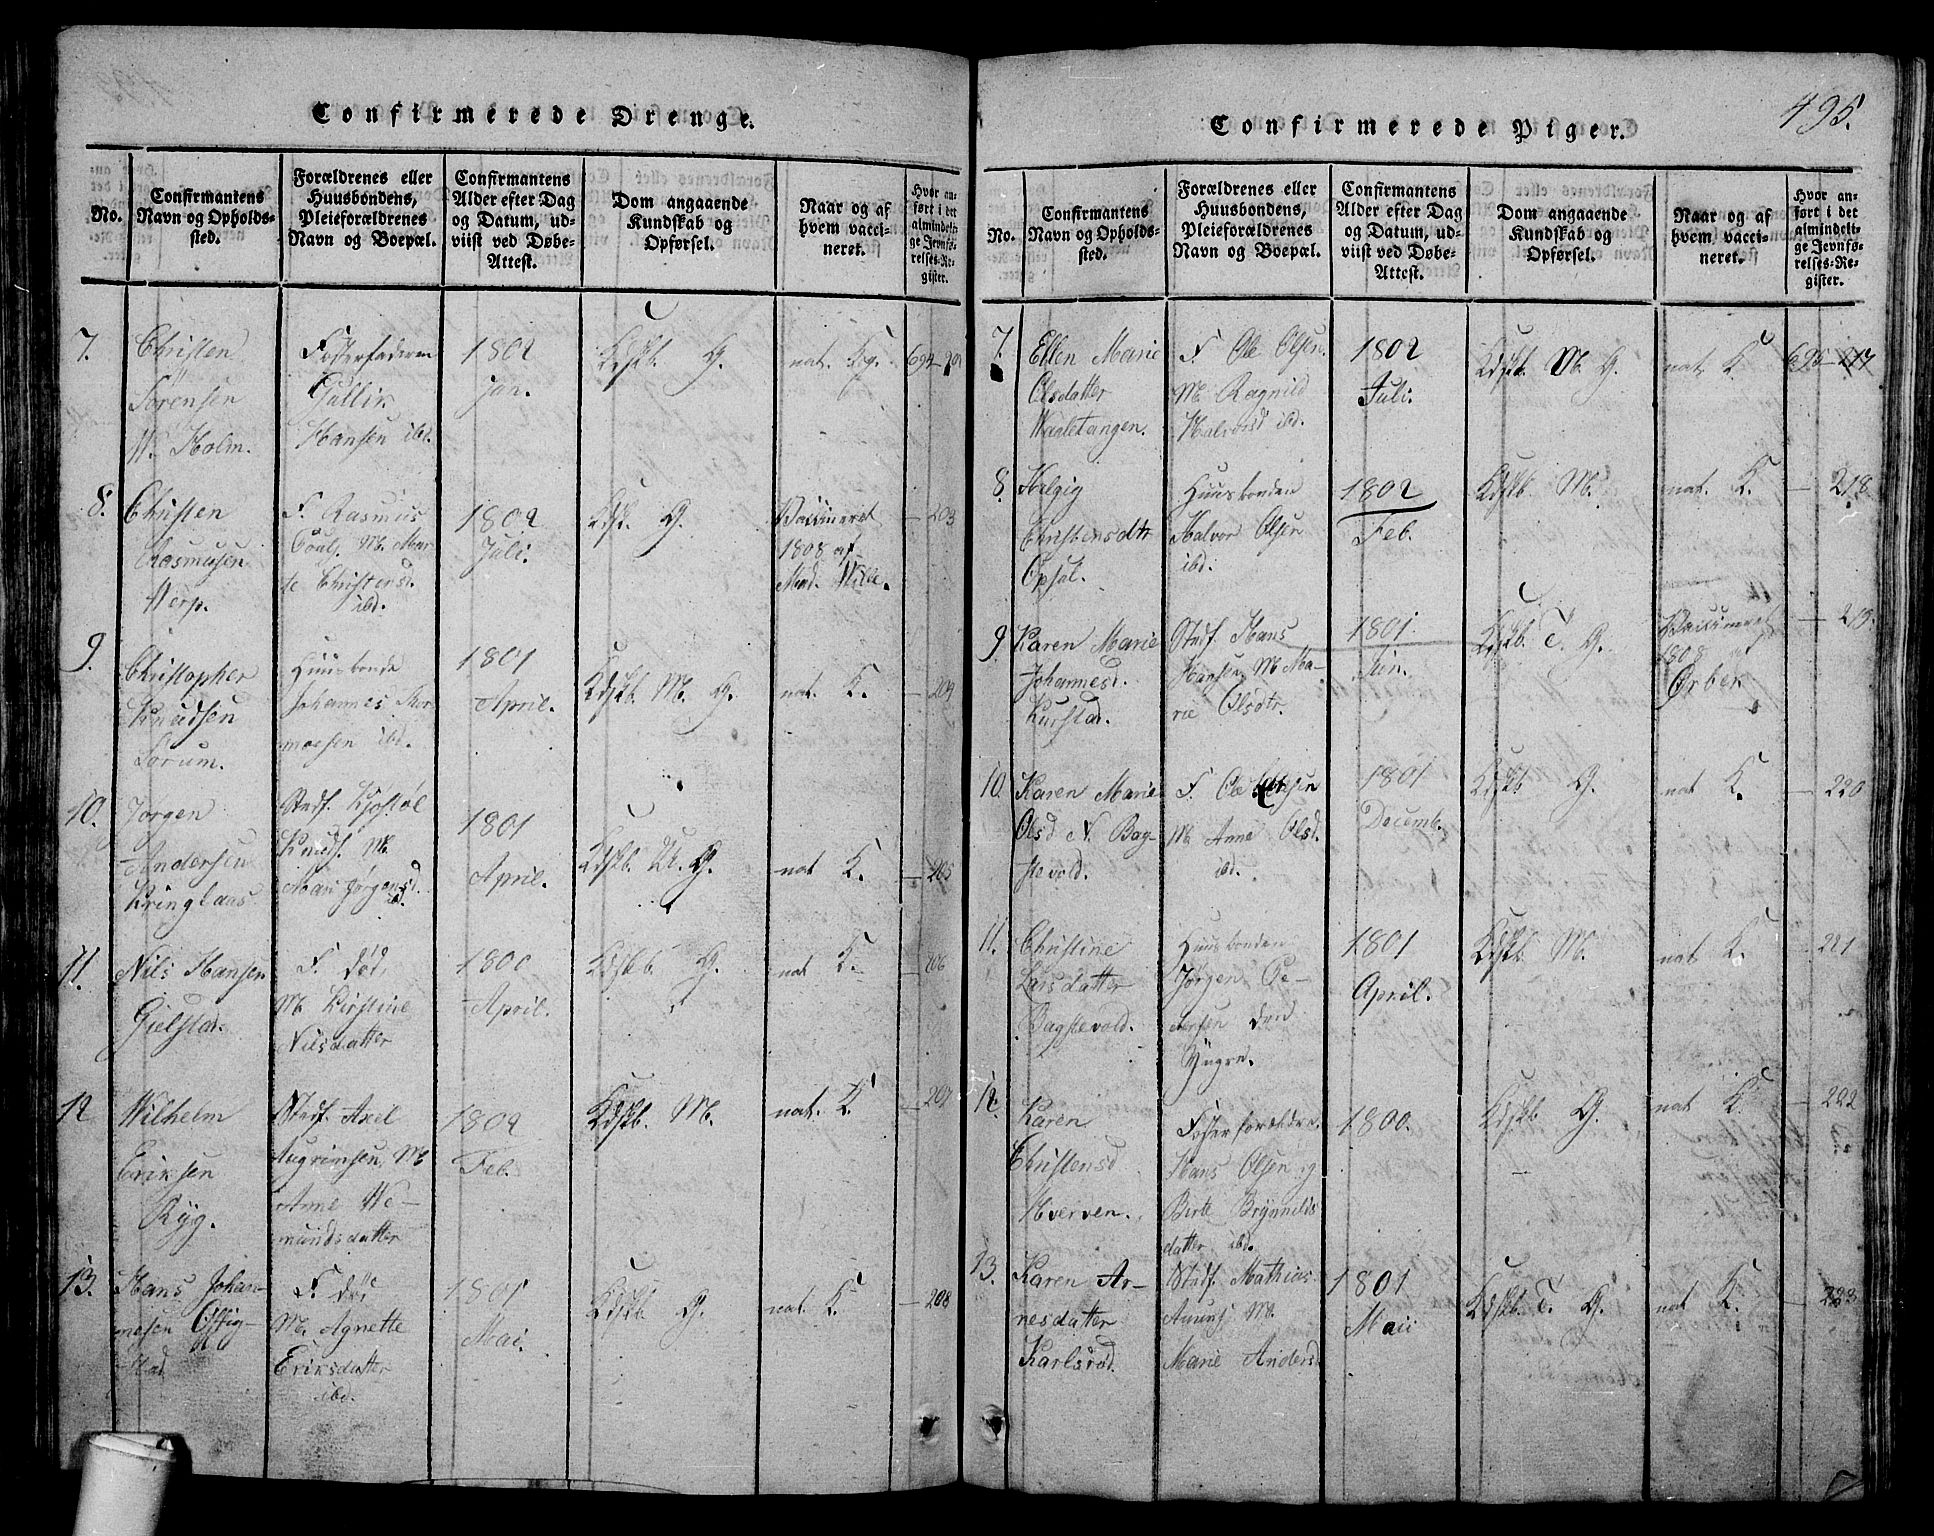 Confirmerede Drenge.
No.
Confirmantens
Navn og Opholds-
sted.
Forældrenes eller
Huusbondens,
Pleieforældrenes
Navn og Boepæl.
Confirmantens
Alder efter Dag
og Datum, ud-
viist ved Døbe-
Attest.
Dom angaaende
Kundskab og
Opførsel.
Naar og af
hvem vacci-
neret.
Hvor an-
ført i det
almindeli-
ge Jevnfø-
relses-Re-
gister.
7.
Christen
Sørensen
Holm.
Fosterfaderen
Gullik
Hansen ibd.
1802
Jan.
Kdskb. G.
nat. K.
694-
8.
Christen
Rasmusen
Werp.
F. Rasmus
M. Mar-
te Christensd.
ibd.
1802
Juli.
G.
Vaccineret
1808 af
Mad. Wille.
- 203
9.
Christopher
Knudsen
Sørum.
Huusbonde
Johannes
ibd.
1801
April.
Kdskb. M. G.
nat. K.
- 204
10.
Jørgen
Andersen
Kringlaas
Stedf. Kjostøl
Knuds. M.
Mari Jørgensd.
1801
April.
Kdskb. G.
nat K.
- 205
11.
Nils Hansen
Gielstad.
F. død,
M. Kirstine
Nilsdatter
1800
April.
Kdskb. G.
nat K.
- 206
12
Wilhelm
Eriksen
Ryg.
Stedf. Axel
M
Anne We-
mundsdatter
1802
Feb.
Kdskb. M.
nat. K.
- 207
13.
Hans Johan-
nesen
stad
F. død
M. Agnette
Eriksdatter
ibd.
1801
Mai.
Kdskb. G.
nat. K.
- 208
495.
Confirmerede Piger.
No.
Confirmantens
Navn og Opholds-
sted.
Forældrenes eller
Huusbondens,
Pleieforældrenes
Navn og Boepæl.
Confirmantens
Alder efter Dag
og Datum, ud-
viist ved Døbe-
Attest.
Dom angaaende
Kundskab og
Opførsel.
Naar og af
hvem vacci-
neret.
Hvor an-
ført i det
almindeli-
ge Jevnfø-
relses-Re-
gister.
7.
Ellen Marie
Olsdatter
Waletangen.
F. Ole Olsen.
M. Ragnild
Halvorsd ibd.
1802
Juli.
Kdskb. M. G.
nat. K.
695-217
8.
Helgig
Christensdtr
Opsal.
Huusbonden
Halvor Olsen
ibd.
1802
Feb.
Kdskb. M.
nat. K.
- 218
9.
Karen Marie
Johannesd.
Kurstad.
Stedf. Hans
Hansen, M. Ma-
rie Olsdtr.
1801.
Jun.
Kdskb. T. G.
Vaccineret
1808
Ørbek
- 219.
10.
Karen Marie
Olsd N. Bag-
stevold.
F. Ole
M. Anne Olsd.
ibd.
1801
Decemb.
Kdskb G.
nat K.
- 220
11.
Christine
Larsdatter
Bagstevold.
Huusbonden
Jørgen Pe-
dersen den
Yngre.
1801
April.
Kdskb. M.
nat. K.
- 221
12.
Karen
Christensd
Hverven.
Fosterforældre.
Hans Olsen og
Birte Brynnilds
datter ibd.
1800.
Kdskb. G.
nat K.
- 222
13.
Karen Ar-
nesdatter
Karlsrød.
Stedf. Mathias
M.
Marie Andersd
1801
Maii
Kdskb. T. G.
nat K.
- 223